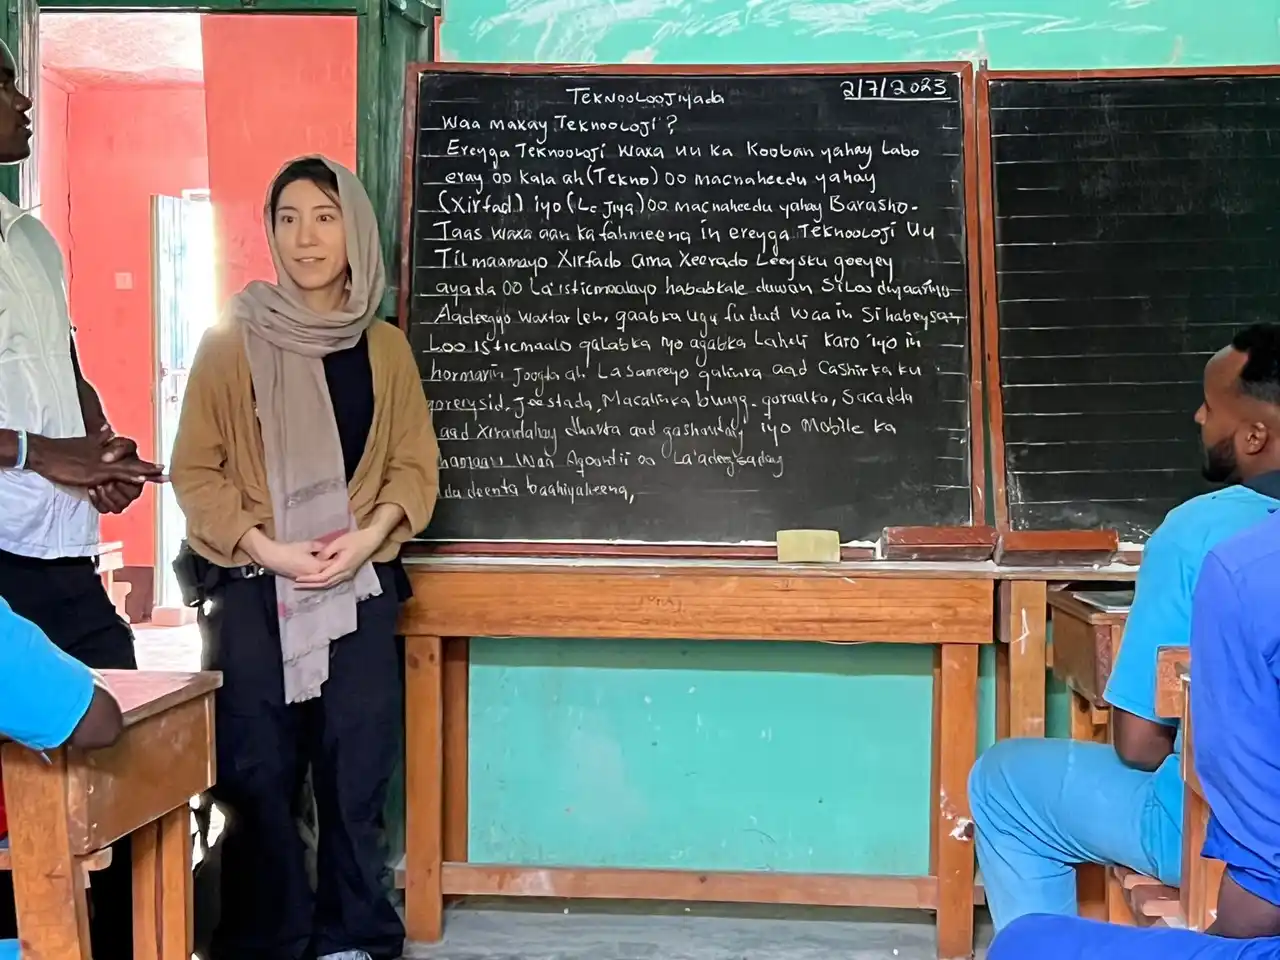 Teknooloojiyada
2/7/2023
Waa maxay Teknooloji?
Ereyga Teknooloji waxa uu ka kooban yahay Labo
eray oo kala ah (Tekno) oo macnaheedu yahay
(Xirfad) iyo (Lo Jiya) oo macnaheedu yahay Barasho.
Taas waxa aan ka fahmeena in ereyga Teknooloji Uu
Tilmaamayo Xirfado ama Xeerado Leeysku geeyey
ayada oo La'isticmaalayo hababkale duwan Siloo diyaariyo
Aadeegyo waxtar leh, qaabka ugu fudud waa in
Loo isticmaalo qalabka iyo agabka Laheli karo iyo in
La sameeyo qalinka aad Casharka ku
Jeestada, Macalinka buugg-qoraalko, Saacadda
aad Xirantahay dharka aad gashantay iyo Mobile ka
Waa Aqoontii oo La'adeegsaday
baahiyaheena,